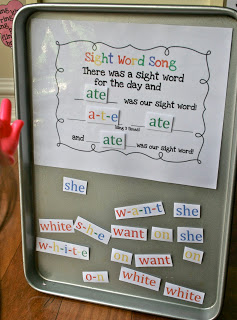 Sight Word Song
There was a sight word
for the day and
ate was our sight word!
a-t-e ate
and ate was our sight word!
she
w-a-n-t she
white s-h-e want on she
w-h-i-t-e on want on
o-n white white